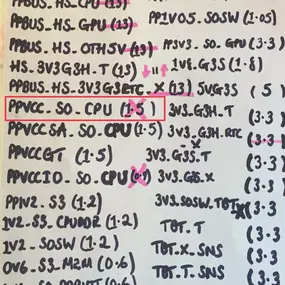 PPBUS_HS_CPU (13)
PPBUS_HS_GPU (13)
PPBUS_HS_OTH5V (13)
HS_3V3G3H_T (13)
PPBUS_HS_3V3G3RTC_X (13)
PPVCC_S0_CPU (1.5
PPVCCSA_S0_CPU (1.5)
PPVCCGT (1.5)
PPVCCIO_S0_CPU
PP1V2_S3 (1.2)
1V2_S3_CPUDDR (1.2)
1V2_S0SW (1.2)
0V6_S3_MEM (0.6)
(0.6)
PP1V05_S0SW (1.05)
PP3V3_S0_GPU (3.3)
1V8_G3S (1.8)
5VG3S (5)
3V3_G3H_T (3.3)
3V3_G3H_RTC (3.3
3V3_G3S_T (3.3
3V3_G3S_X (3.3
3V3_S0SW_TBTX (3.3
TBT_T (3.3
TBT_X_SNS (3.3
TBT_T_SNS (3.3